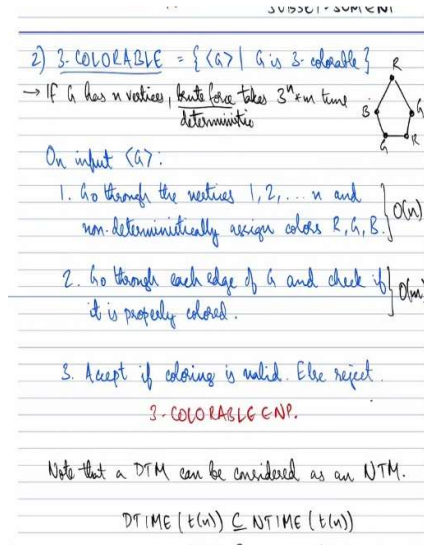 SUBSET-SUM ∈ NP
2) 3-COLORABLE = {<G> | G is 3-colorable}
→ If G has n vertices, brute force takes 3ⁿ*m time
deterministic
R
B
G
G
R
On input <G>:
1. Go through the vertices 1, 2, ... n and
non-deterministically assign colors R, G, B. } O(n)
2. Go through each edge of G and check if
it is properly colored. } O(m)
3. Accept if coloring is valid. Else reject.
3-COLORABLE ∈ NP.
Note that a DTM can be considered as an NTM.
DTIME (t(n)) ⊆ NTIME (t(n))